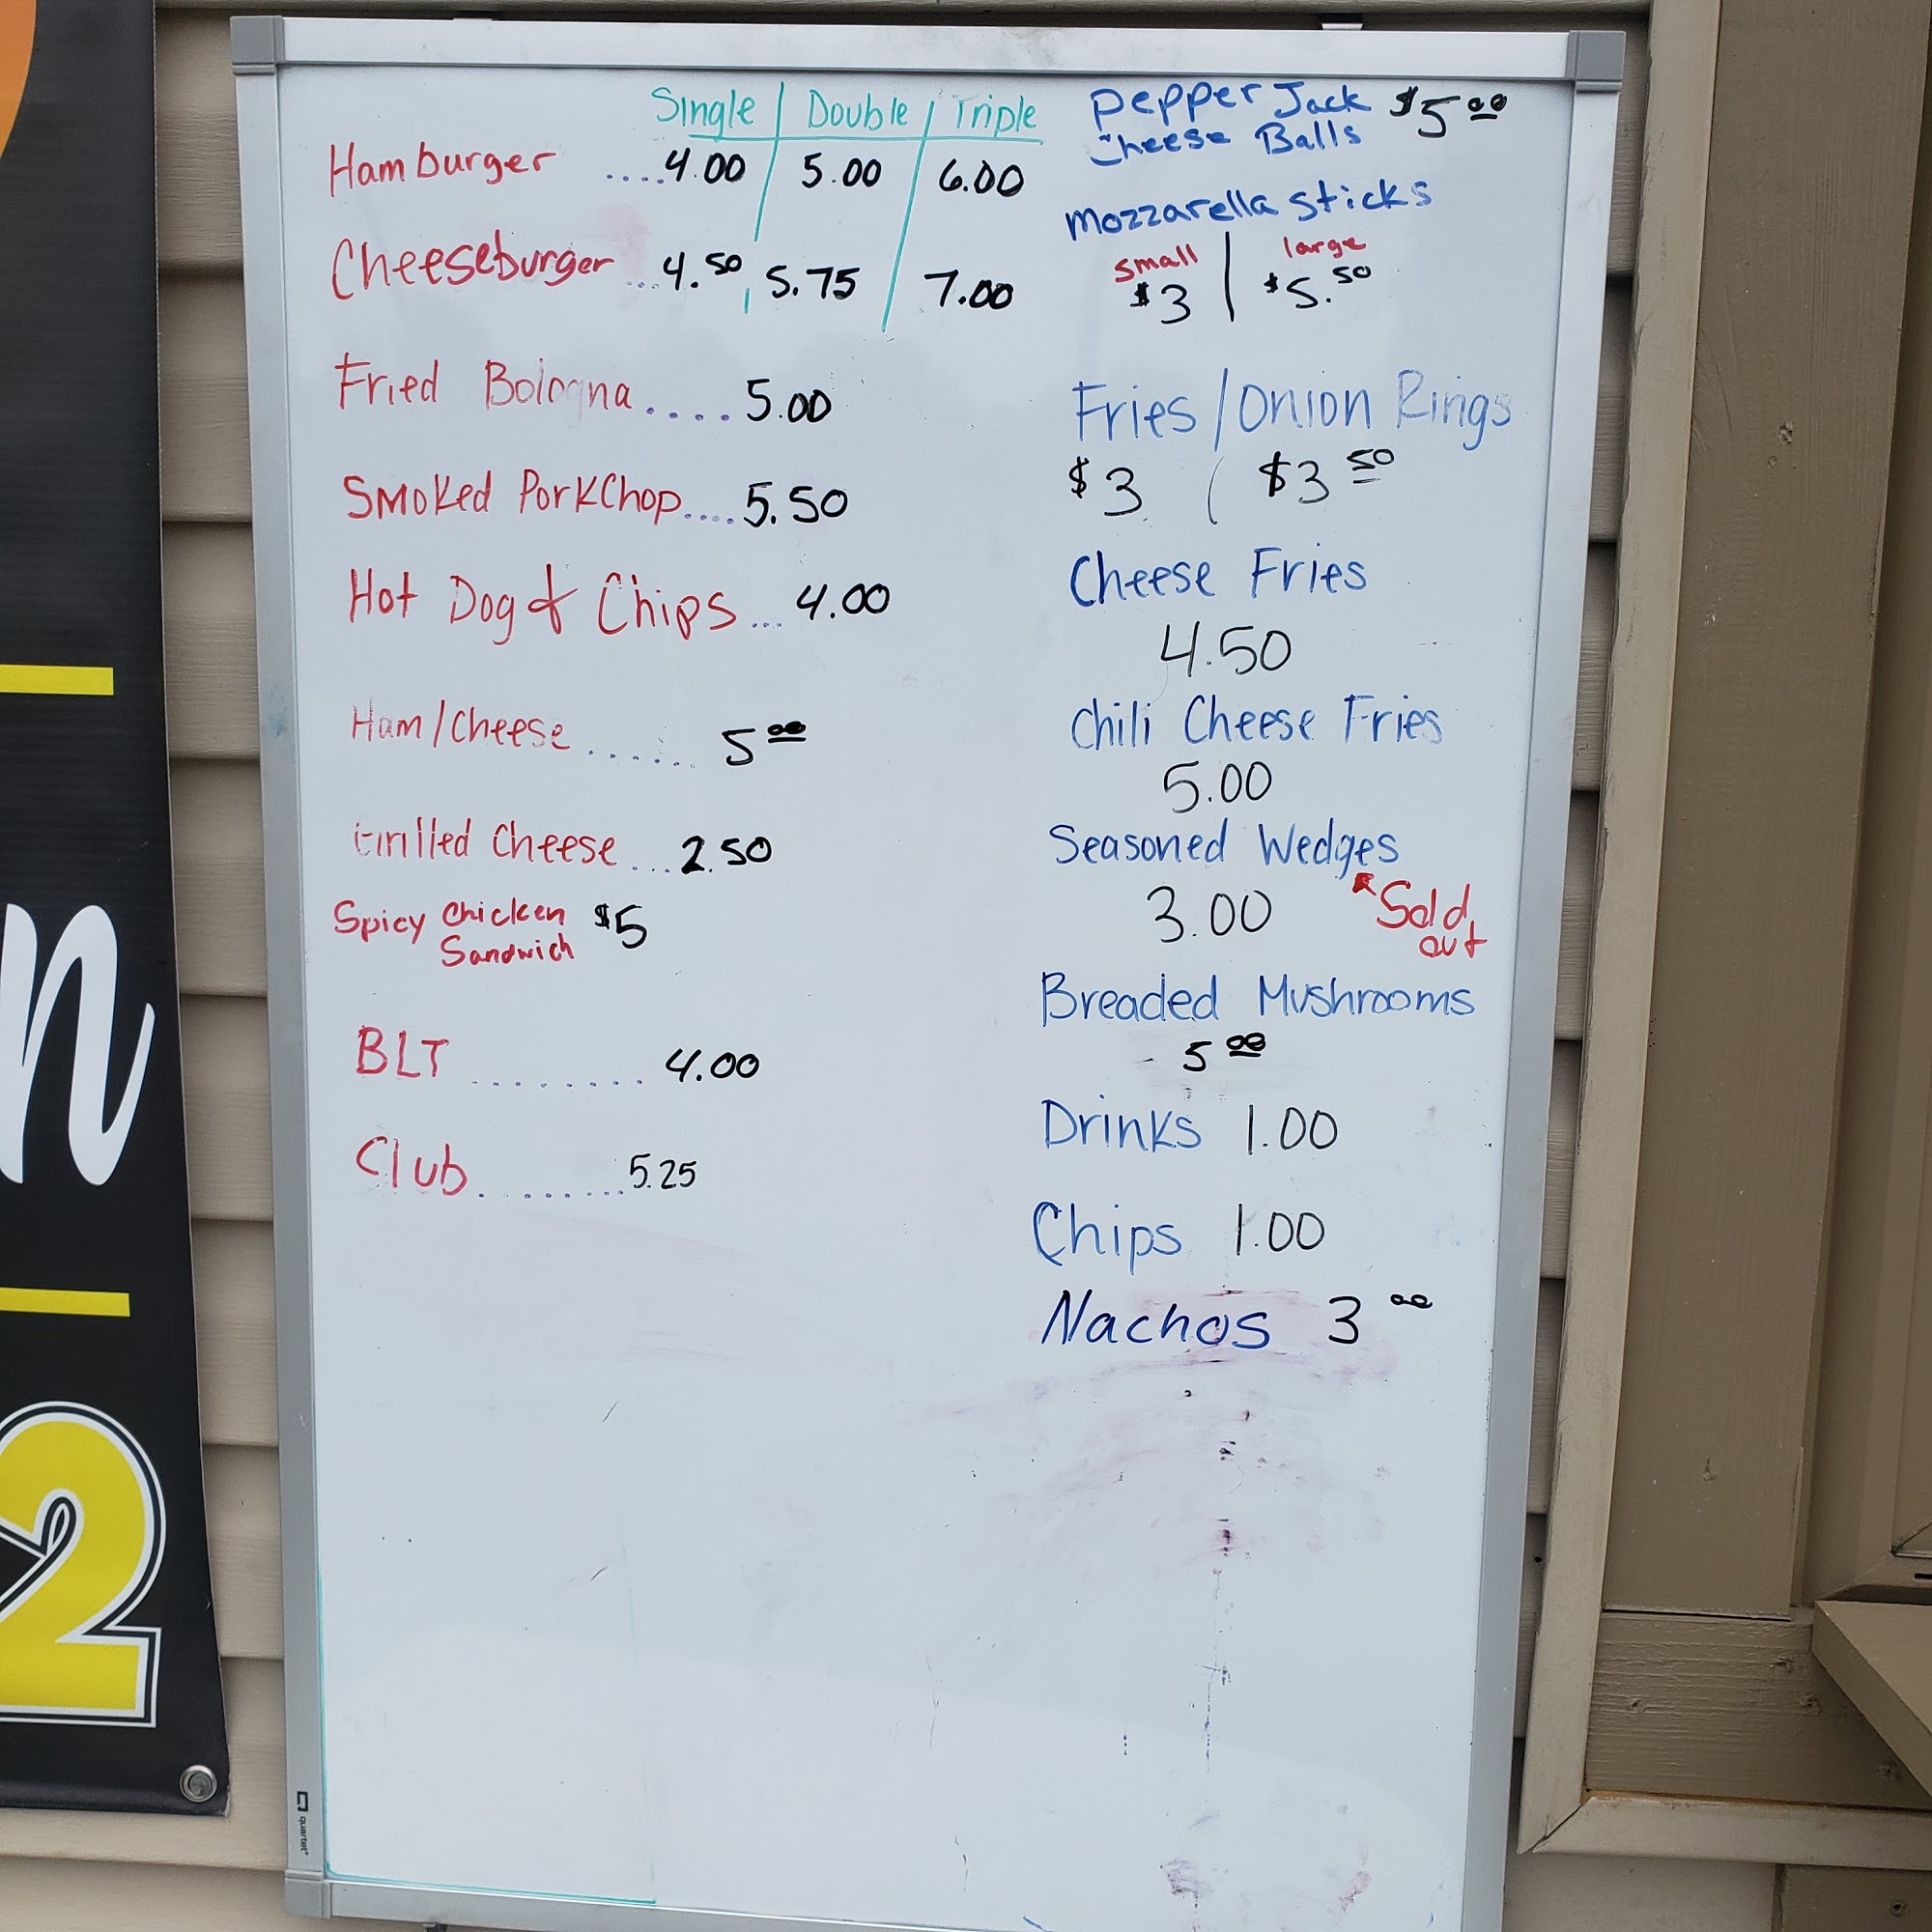 Single | Double | Triple
Hamburger ....4.00 | 5.00 | 6.00
Cheeseburger ...4.50 | 5.75 | 7.00
Fried Bologna .... 5.00
Smoked PorkChop.... 5.50
Hot Dog & Chips ... 4.00
Ham/Cheese ...... 5 00
Grilled Cheese ... 2.50
Spicy Chicken $5
Sandwich
BLT ........ 4.00
Club ........ 5.25
Pepper Jack $5 00
Cheese Balls
Mozzarella Sticks
small | large
$3 | $5.50
Fries / Onion Rings
$3 ( $3 50
Cheese Fries
4.50
Chili Cheese Fries
5.00
Seasoned Wedges
3.00 Sold
out
Breaded Mushrooms
5 00
Drinks 1.00
Chips 1.00
Nachos 3 00
n
2
quartet